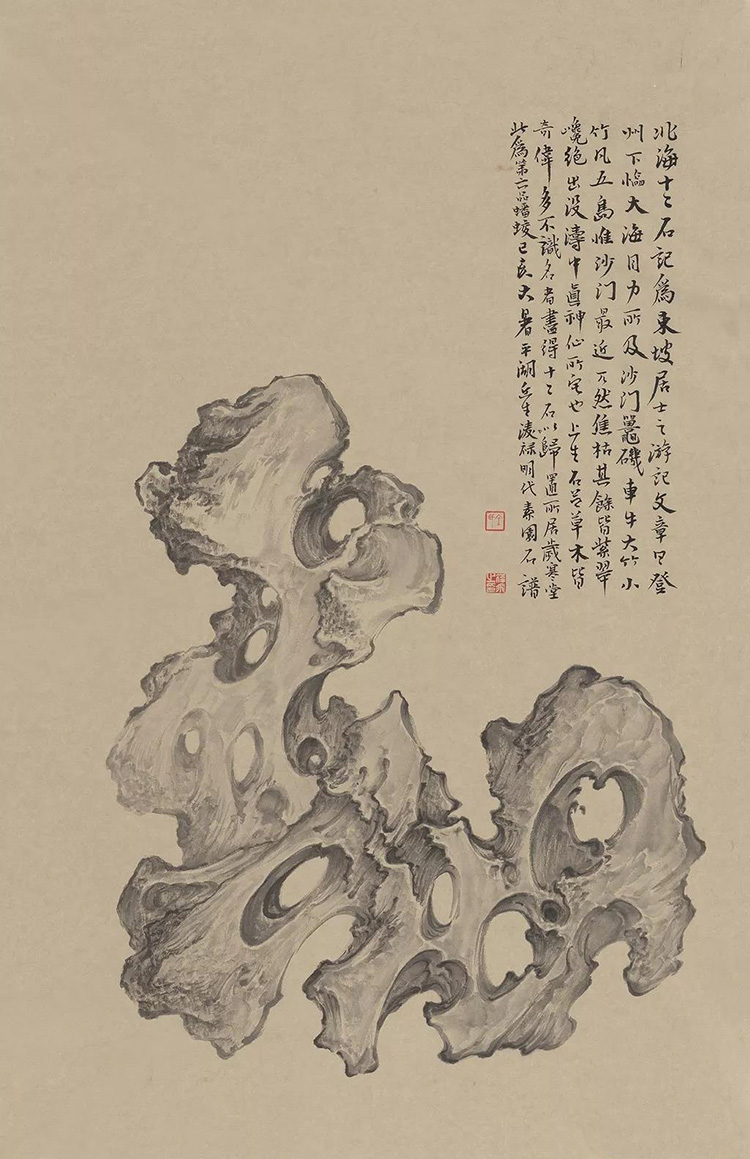 北海十二石記爲東坡居士之游記文章曰登
州下臨大海目力所及沙門鼉磯車牛大竹小
竹凡五島惟沙門最近兀然焦枯其餘皆紫翠
巉絶出没濤中真神仙所宅也上生石芝草木皆
奇偉多不識名者盡得十二石以歸置所居歲寒堂
此爲第六品蟠蛟己亥大暑平湖生明代素園石譜